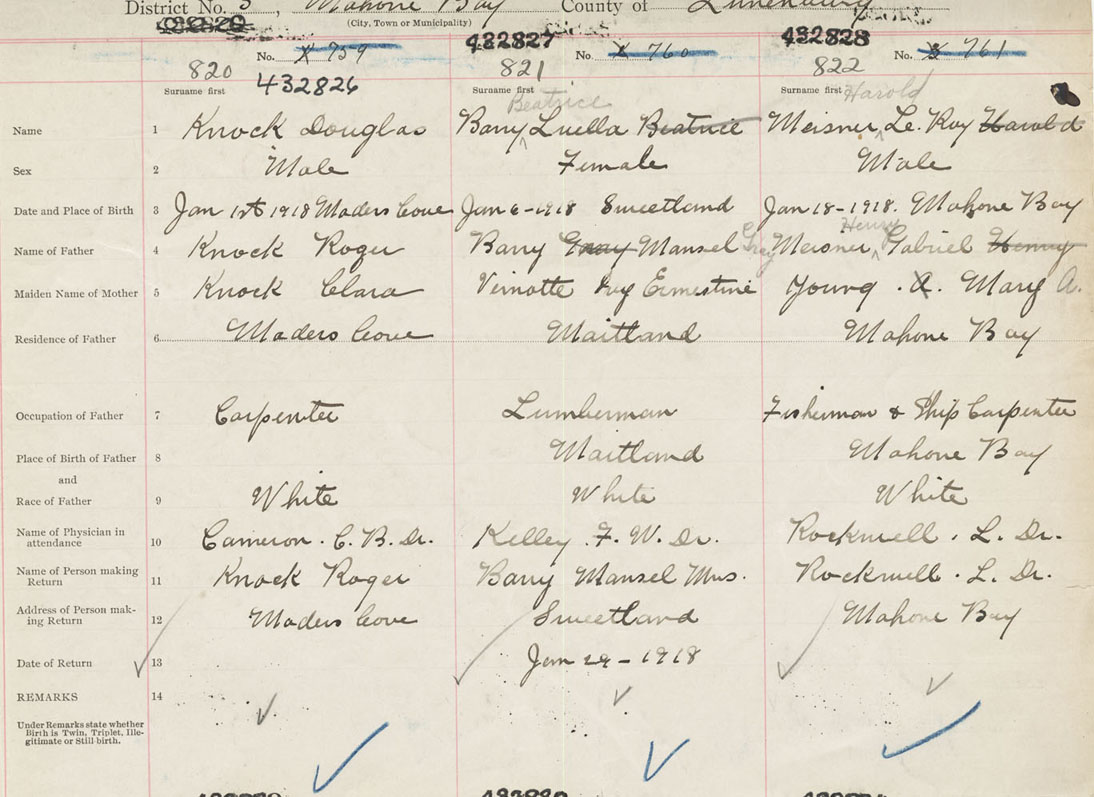 District No. 3, Mahone Bay County of Lunenburg
(City, Town or Municipality)
432827 432828
No. X 759 No. X 760 No. X 761
820 821 822
432826
Surname first Surname first Surname first
Beatrice Harold
Name 1 Knock Douglas Barry Luella Beatrice Meisner Le Roy Harold
Sex 2 Male Female Male
Date and Place of Birth 3 Jan 1st 1918 Maders Cove Jan 6-1918 Sweetland Jan 18-1918. Mahone Bay
Henry
Name of Father 4 Knock Roger Barry Mansel Meisner Gabriel Henry
Maiden Name of Mother 5 Knock Clara Vernotte Ivy Ernestine Young . A. Mary A.
Residence of Father 6 Maders Cove Maitland Mahone Bay
Occupation of Father 7 Carpenter Lumberman Fisherman & Ship Carpenter
Place of Birth of Father 8 Maitland Mahone Bay
and
Race of Father 9 White White White
Name of Physician in
attendance 10 Cameron . C. B. Dr. Kelley . F. W. Dr. Rockwell . L. Dr.
Name of Person making
Return 11 Knock Roger Barry Mansel Mrs. Rockwell . L. Dr.
Address of Person mak-
ing Return 12 Maders Cove Sweetland Mahone Bay
Date of Return 13 Jan 29-1918
REMARKS 14
Under Remarks state whether
Birth is Twin, Triplet, Ille-
gitimate or Still-birth.